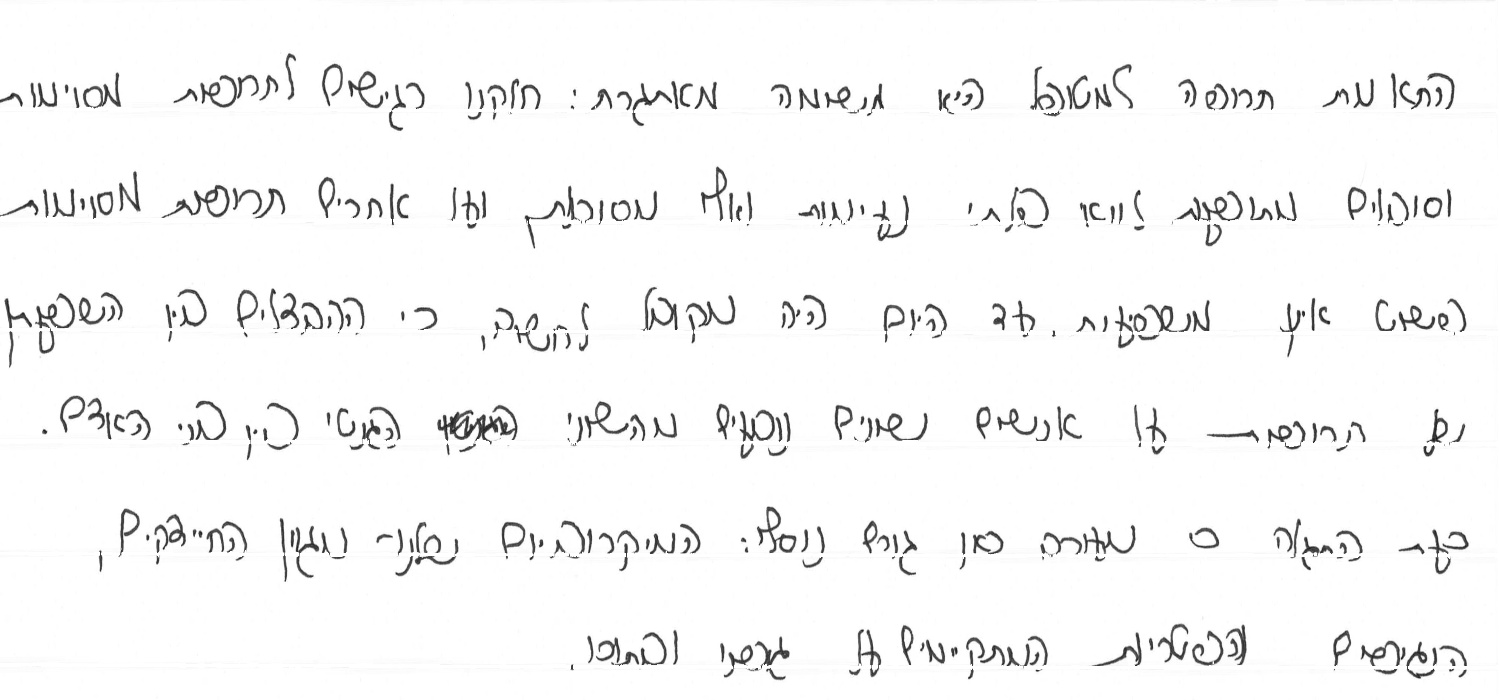 התאמת תרופה למטופל היא משימה מאתגרת: חלקנו רגישים לתרופות מסוימות
וסובלים מתופעות לוואי בלתי נעימות ואף מסוכנות, ועל אחרים תרופות מסוימות
פשוט אינן משפיעות. עד היום היה מקובל לחשוב, כי ההבדלים בין השפעתן
של תרופות על אנשים שונים נובעים מהשוני הגנטי בין בני האדם.
כעת התגלה כי מעורב כאן גורם נוסף: המיקרוביום שלנו - מגוון החיידקים,
הנגיפים והפטריות המתקיימים על גופנו ובתוכו.